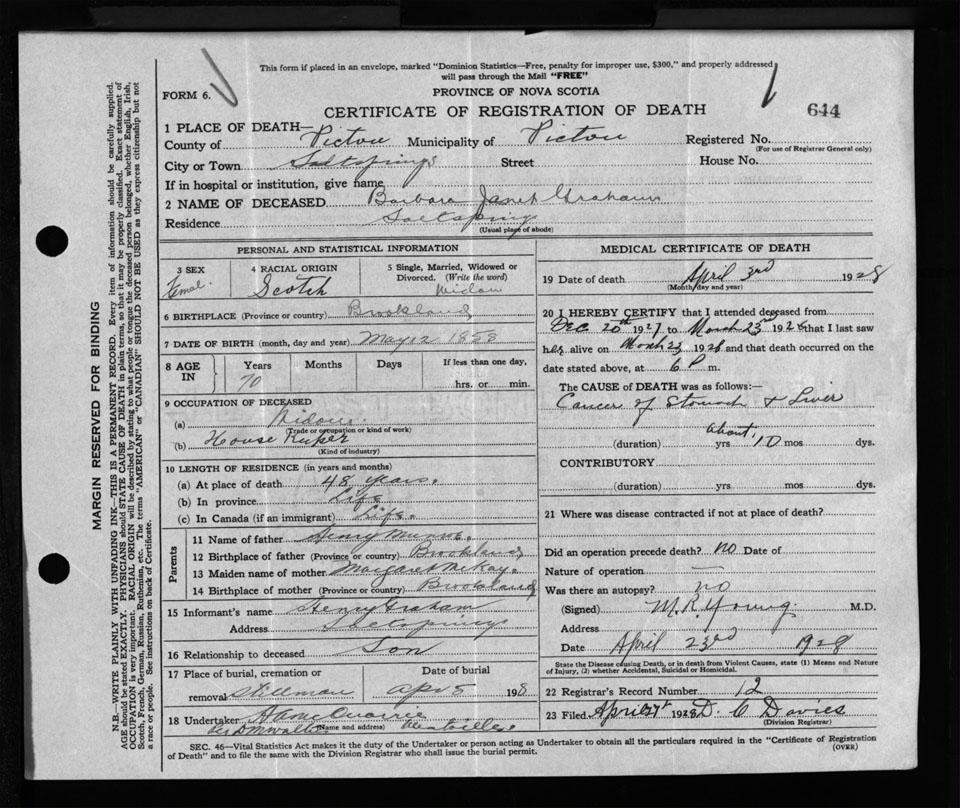 This form if placed in an envelope, marked "Dominion Statistics—Free, penalty for improper use, $300," and properly addressed
will pass through the Mail "FREE"
FORM 6.
PROVINCE OF NOVA SCOTIA
CERTIFICATE OF REGISTRATION OF DEATH
644
1 PLACE OF DEATH—
County of Pictou Municipality of Pictou Registered No.
(For use of Registrar General only)
City or Town Saltsprings Street House No.
If in hospital or institution, give name
2 NAME OF DECEASED Barbara Janet Graham
Residence Saltsprings
(Usual place of abode)
PERSONAL AND STATISTICAL INFORMATION
3 SEX 4 RACIAL ORIGIN 5 Single, Married, Widowed or
Divorced. (Write the word)
Femal. Scotch Widow
6 BIRTHPLACE (Province or country) Brookland
7 DATE OF BIRTH (month, day and year) 1858
8 AGE IN Years Months Days If less than one day,
70 hrs. or min.
9 OCCUPATION OF DECEASED
(a) Widow
(Trade or occupation or kind of work)
(b) House Keeper
(Kind of industry)
10 LENGTH OF RESIDENCE (in years and months)
(a) At place of death 48 years.
(b) In province Life
(c) In Canada (if an immigrant) Life.
Parents
11 Name of father Henry Munro.
12 Birthplace of father (Province or country) Brookland
13 Maiden name of mother Margaret McKay.
14 Birthplace of mother (Province or country) Brookland
15 Informant's name Henry Graham
Address Saltsprings
16 Relationship to deceased Son
17 Place of burial, cremation or Date of burial
removal Stillman Apr 5 198
18 Undertaker
(Name and address)
MEDICAL CERTIFICATE OF DEATH
19 Date of death April 3rd 1928
(Month, day and year)
20 I HEREBY CERTIFY that I attended deceased from
Dec 20th 1927 to March 23rd 1928 that I last saw
her alive on March 23 1928 and that death occurred on the
date stated above, at 6 P m.
The CAUSE of DEATH was as follows:—
Cancer of Stomach & Liver
(duration) yrs About 10 mos dys.
CONTRIBUTORY
(duration) yrs mos dys.
21 Where was disease contracted if not at place of death?
Did an operation precede death? no Date of
Nature of operation —
Was there an autopsy? no
(Signed) M. R. Young. M.D.
Address
Date April 23rd 1928
State the Disease causing Death, or in death from Violent Causes, state (1) Means and Nature
of Injury, (2) whether Accidental, Suicidal or Homicidal.
22 Registrar's Record Number 12
23 Filed April 27 1928 D. C Davies
(Division Registrar)
SEC. 46—Vital Statistics Act makes it the duty of the Undertaker or person acting as Undertaker to obtain all the particulars required in the "Certificate of Registration
of Death" and to file the same with the Division Registrar who shall issue the burial permit. (OVER)
MARGIN RESERVED FOR BINDING
N.B.—WRITE PLAINLY, WITH UNFADING INK—THIS IS A PERMANENT RECORD. Every item of information should be carefully supplied.
AGE should be stated EXACTLY. PHYSICIANS should STATE CAUSE OF DEATH in plain terms, so that it may be properly classified. Exact statement of
OCCUPATION is very important. RACIAL ORIGIN will be described by stating to what people or tongue the deceased person belonged, whether English, Irish,
Scotch, French, German, Russian, Ruthenian, etc. The terms "AMERICAN" or "CANADIAN" SHOULD NOT BE USED as they express citizenship but not
a race or people. See instructions on back of Certificate.